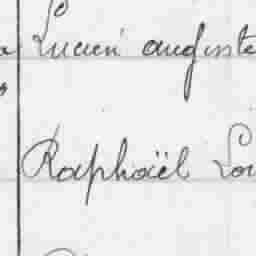 Lucien auguste
Raphaël Lou